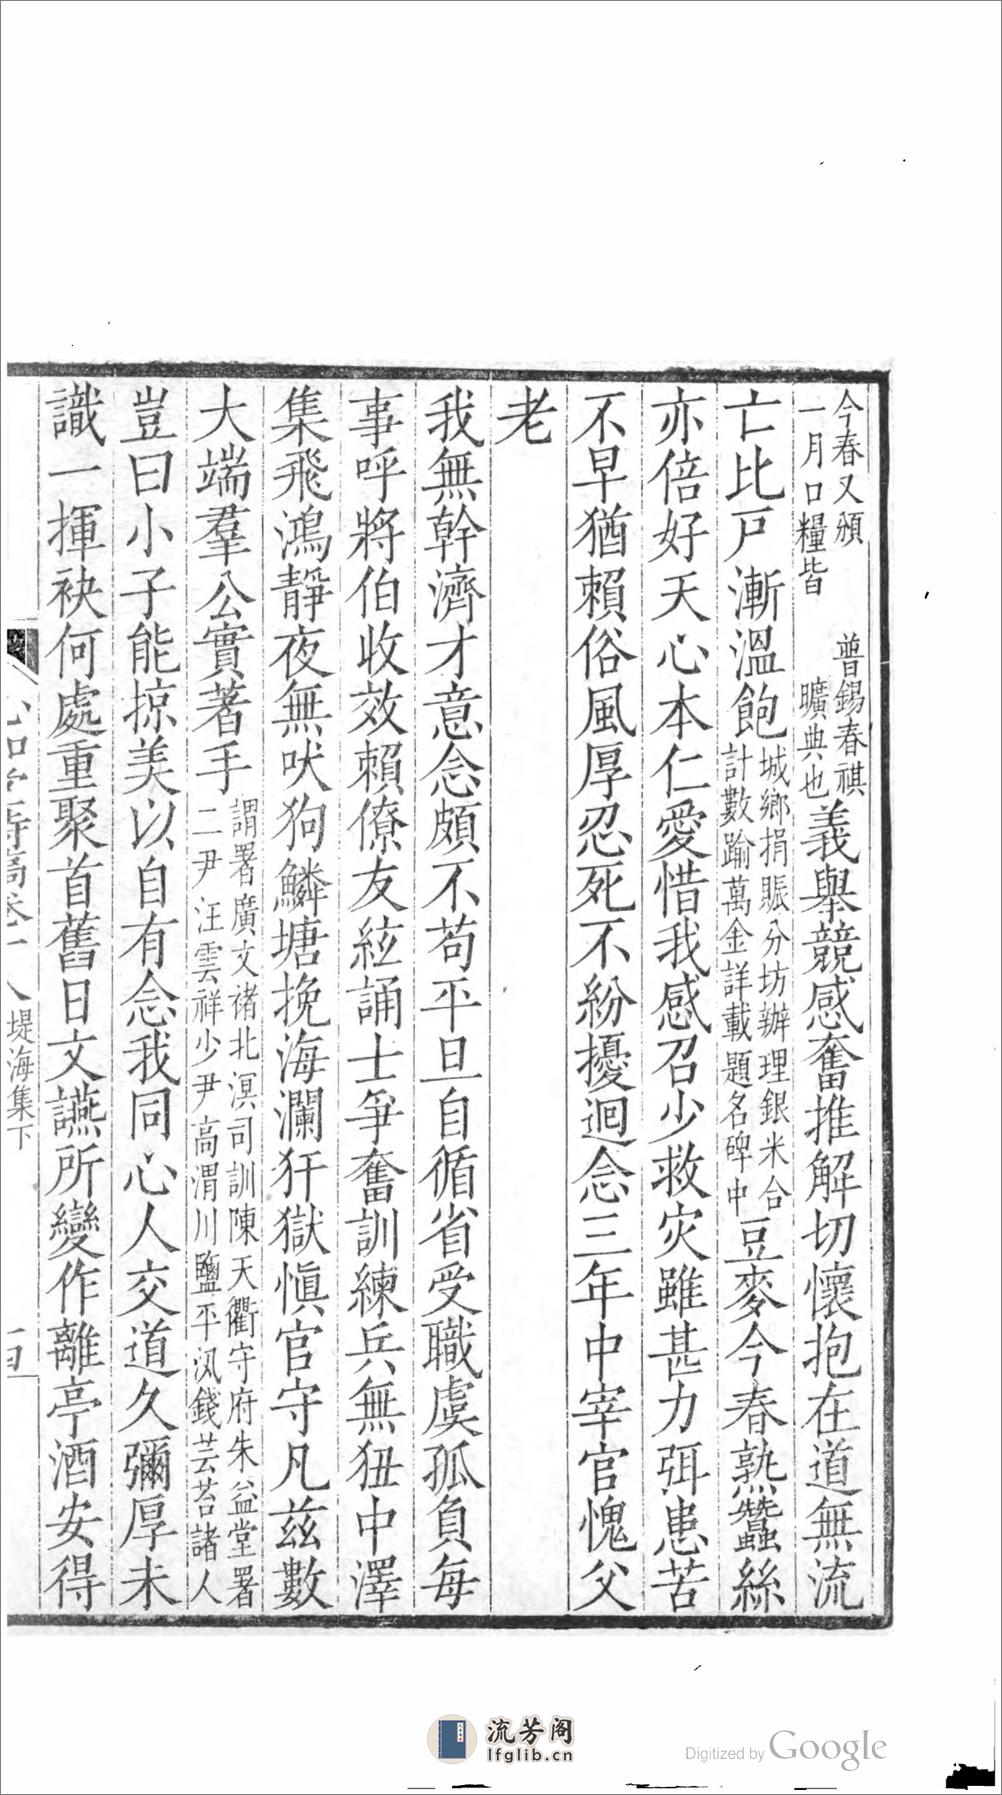 今春又頒　普錫春祺
一月口糧皆　曠典也
義舉競感奮推解切懷抱在道無流
亡比戸漸溫飽
城鄉捐賑分坊辦理銀米合
計數踰萬金詳載題名碑中
豆麥今春熟蠶絲
亦倍好天心本仁愛惜我感召少救灾雖甚力弭患苦
不早猶賴俗風厚忍死不紛擾迴念三年中宰官愧父
老
我無幹濟才意念頗不苟平旦自循省受職虞孤負每
事呼將伯收效賴僚友絃誦士爭奮訓練兵無狃中澤
集飛鴻靜夜無吠狗鱗塘挽海瀾犴獄慎官守凡茲數
大端羣公實著手
謂署廣文诸北溟司訓陳天衢守府朱益堂署
二尹汪雲祥少尹高渭川鹽平汎錢芸苔諸人
豈曰小子能掠美以自有念我同心人交道久彌厚未
識一揮袂何處重聚首舊日文讌所變作離亭酒安得
堤海集下
流芳阁
lfglib.cn
Digitized by Google